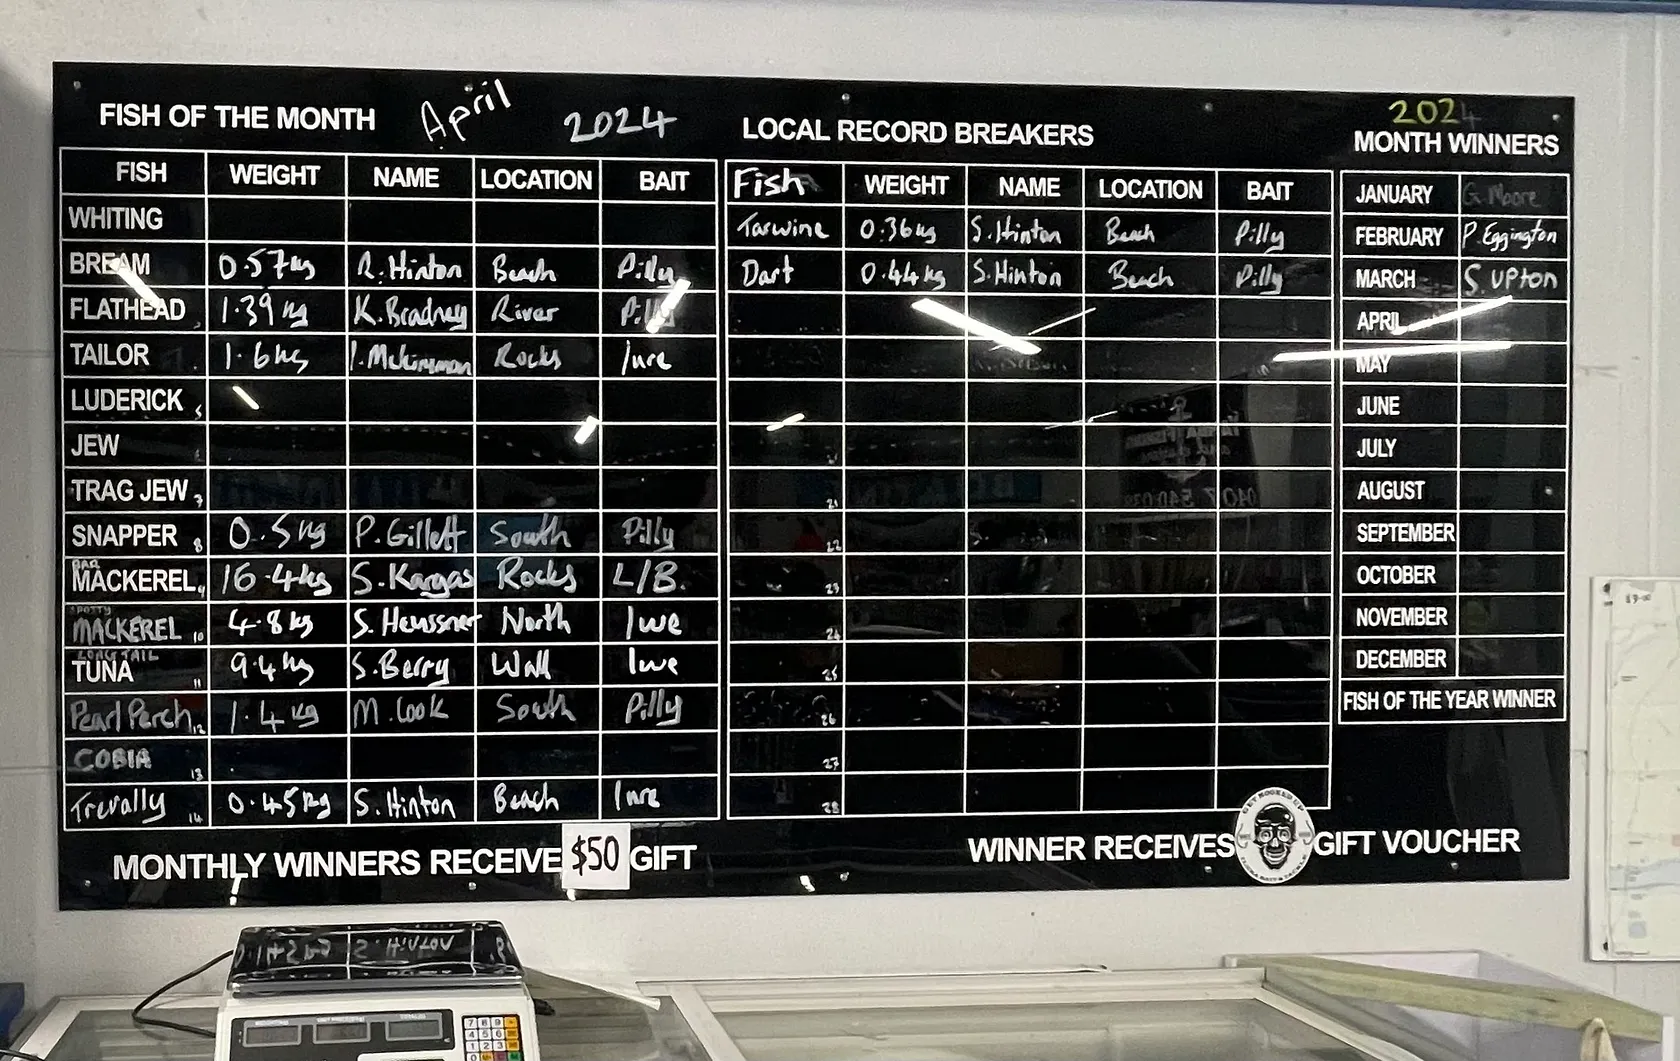 FISH OF THE MONTH April 2024
FISH WEIGHT NAME LOCATION BAIT
WHITING
BREAM 0.57kg R.Hinton Beach Pilly
FLATHEAD 1.39kg K.Bradney River Pilly
TAILOR 1.6kg Rocks lure
LUDERICK 5
JEW
TRAG JEW 7
SNAPPER 8 0.5kg P.Gillett South Pilly
BAR
MACKEREL 9 16.4kg S.Kargas Rocks L/B.
SPOTTY
MACKEREL 10 4.8kg S.Heussner North lure
LONG TAIL
TUNA 11 9.4kg S.Berry Wall lure
Pearl Perch 12 1.4kg M.Cook South Pilly
COBIA 13
Trevally 14 0.45kg S.Hinton Beach lure
MONTHLY WINNERS RECEIVE $50 GIFT
LOCAL RECORD BREAKERS
Fish WEIGHT NAME LOCATION BAIT
Tarwine 0.36kg S.Hinton Beach Pilly
Dart 0.44kg S.Hinton Beach Pilly
21
22
23
24
25
26
27
28
WINNER RECEIVES GIFT VOUCHER
2024
MONTH WINNERS
JANUARY G.Moore
FEBRUARY P.Eggington
MARCH S.UPTON
APRIL
MAY
JUNE
JULY
AUGUST
SEPTEMBER
OCTOBER
NOVEMBER
DECEMBER
FISH OF THE YEAR WINNER
7 8 9
4 5 6
1 2 3
0